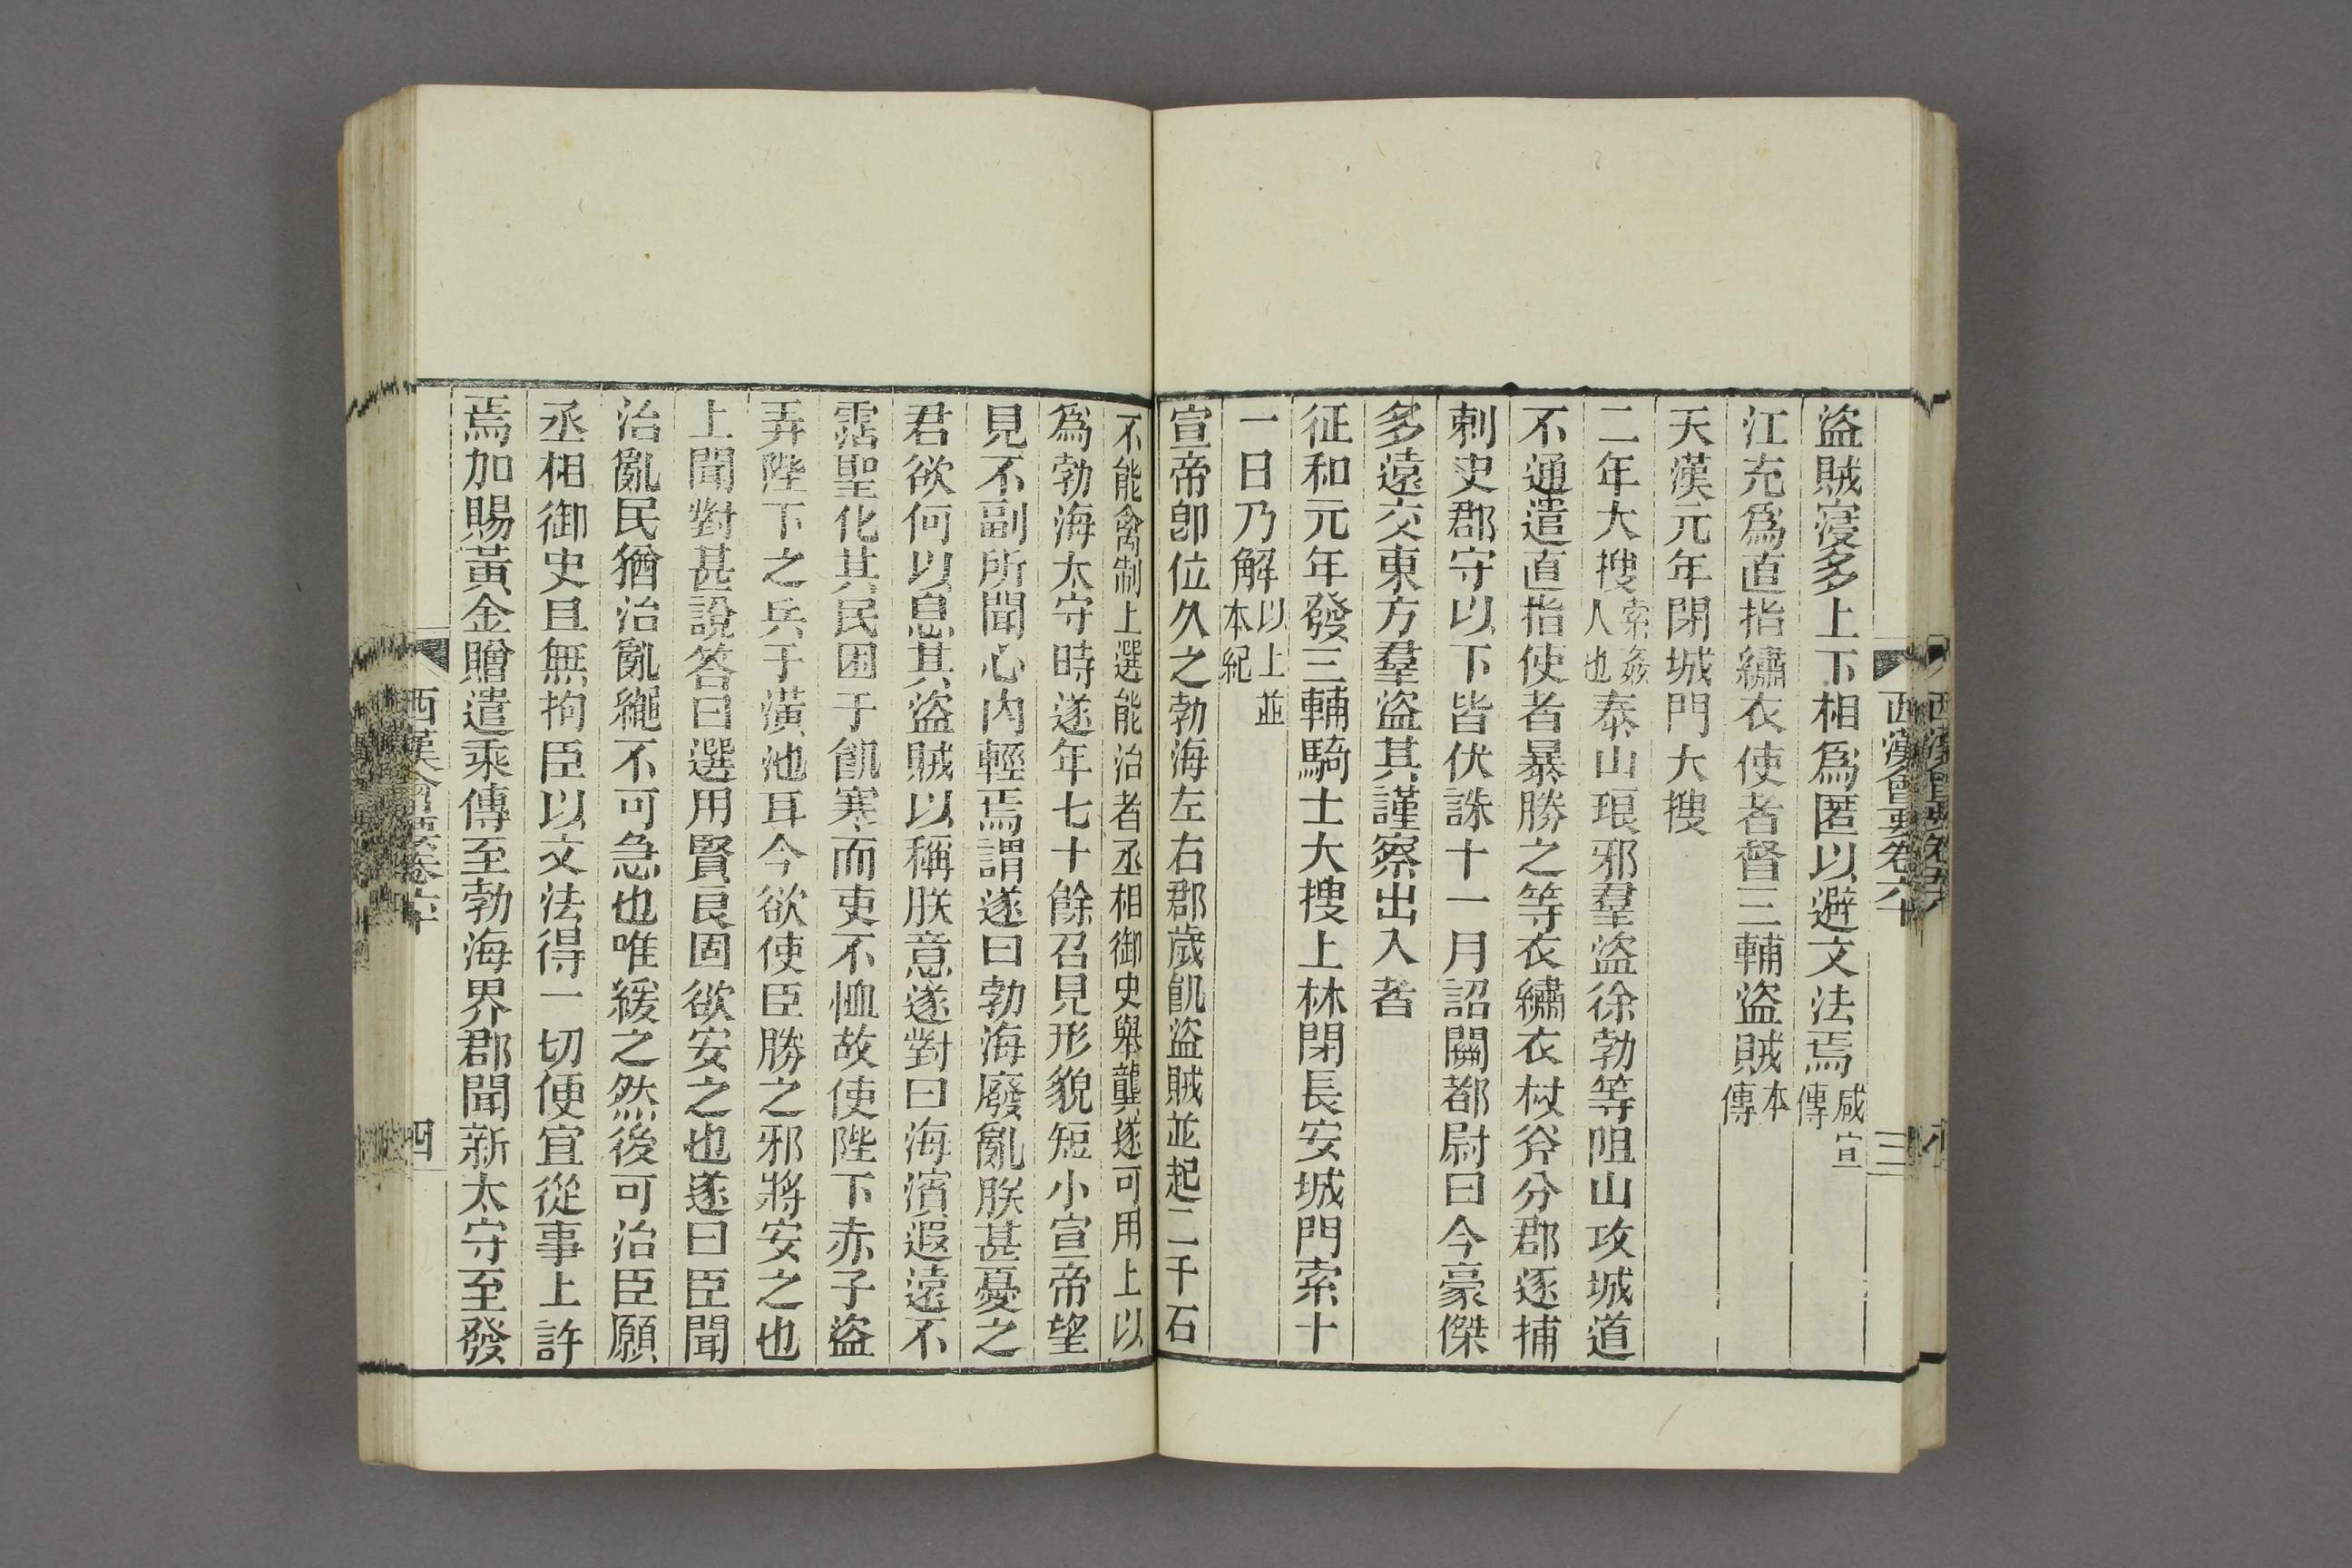 西漢會要卷六十
三
盜賊寖多上下相爲匿以避文法焉咸宣傳
江充爲直指繡衣使者督三輔盜賊本傳
天漢元年閉城門大搜
二年大搜索姦人也泰山琅邪羣盜徐勃等阻山攻城道
不通遣直指使者暴勝之等衣繡衣杖斧分郡逐捕
刺史郡守以下皆伏誅十一月詔關都尉曰今豪傑
多遠交東方羣盜其謹察出入者
征和元年發三輔騎士大搜上林閉長安城門索十
一日乃解以上並本紀
宣帝卽位久之勃海左右郡歲飢盜賊並起二千石
不能禽制上選能治者丞相御史舉龔遂可用上以
爲勃海太守時遂年七十餘召見形貌短小宣帝望
見不副所聞心內輕焉謂遂曰勃海廢亂朕甚憂之
君欲何以息其盜賊以稱朕意遂對曰海濱遐遠不
霑聖化其民困于飢寒而吏不恤故使陛下赤子盜
弄陛下之兵于潢池耳今欲使臣勝之邪將安之也
上聞對甚說答曰選用賢良固欲安之也遂曰臣聞
治亂民猶治亂繩不可急也唯緩之然後可治臣願
丞相御史且無拘臣以文法得一切便宜從事上許
焉加賜黃金贈遣乘傳至勃海界郡聞新太守至發
西漢會要卷六十
四